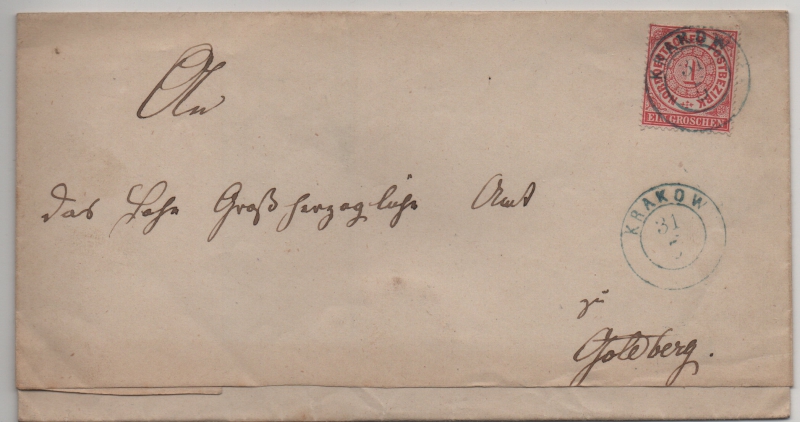 An
das Hohe Großherzogliche Amt
zu
Goldberg.
KRAKOW
31
NORDDEUTSCHER POSTBEZIRK
1
EIN GROSCHEN
KRAKOW
31
7